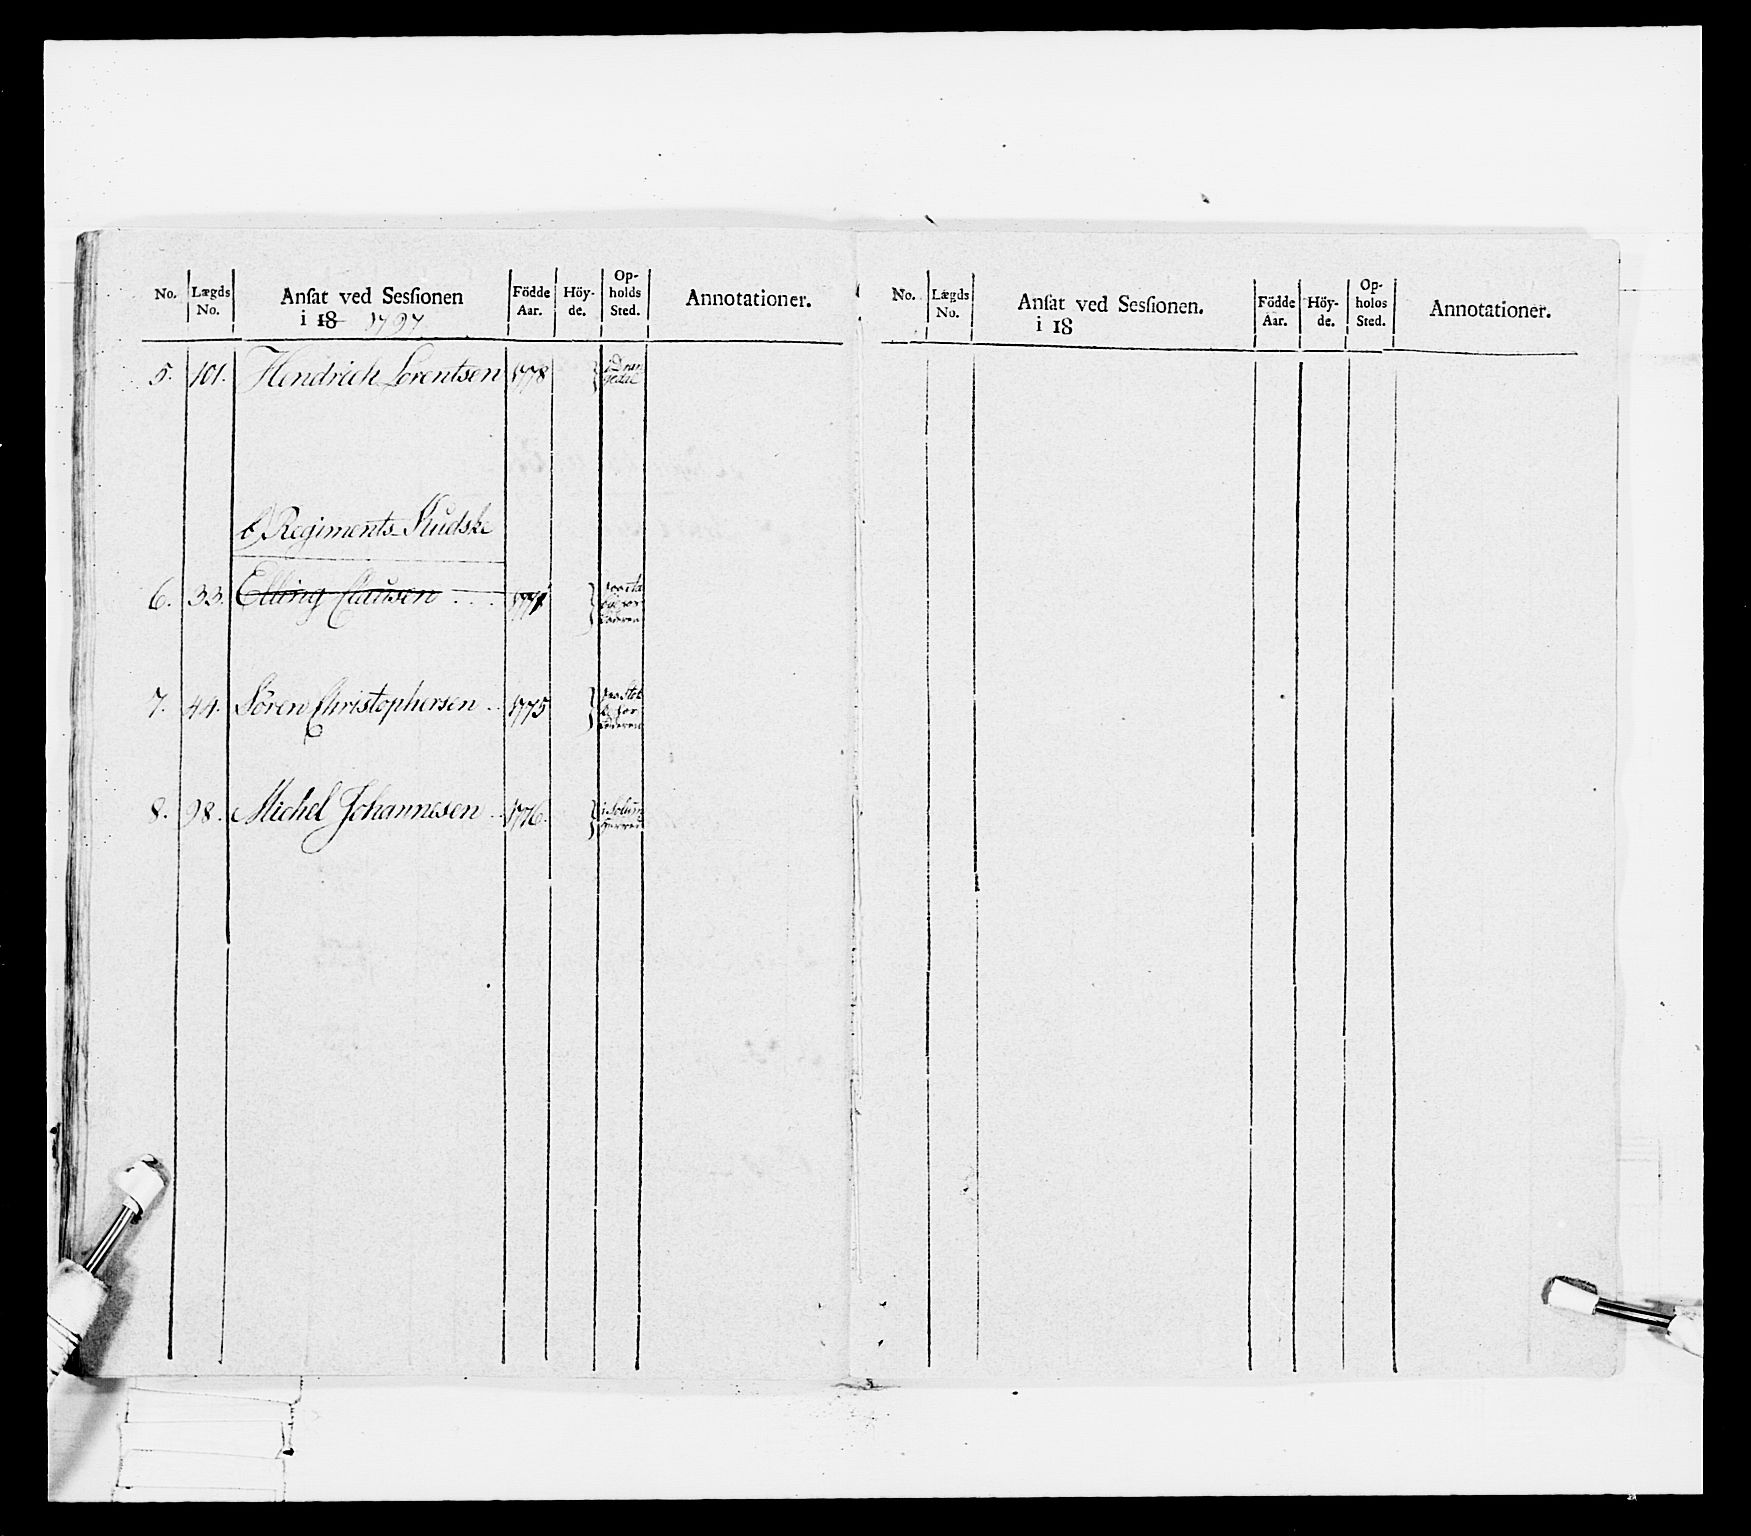 No. Lægds No. Ansat ved Sessionen i 18 1797 Födde Aar. Höy-de. Op-holds Sted. Annotationer.
5. 101. Hendrich Lorentsen 1778 i Dran
gedal
b) Regiments Kudske
6. 33. Elling Clausen . . . 1771
7. 44. Sören Christophersen . . 1775
8. 98. Michel Johannesen . . 1776. i Solum
No. Lægds No. Ansat ved Sessionen. i 18 Födde Aar. Höy-de. Op-holds Sted. Annotationer.